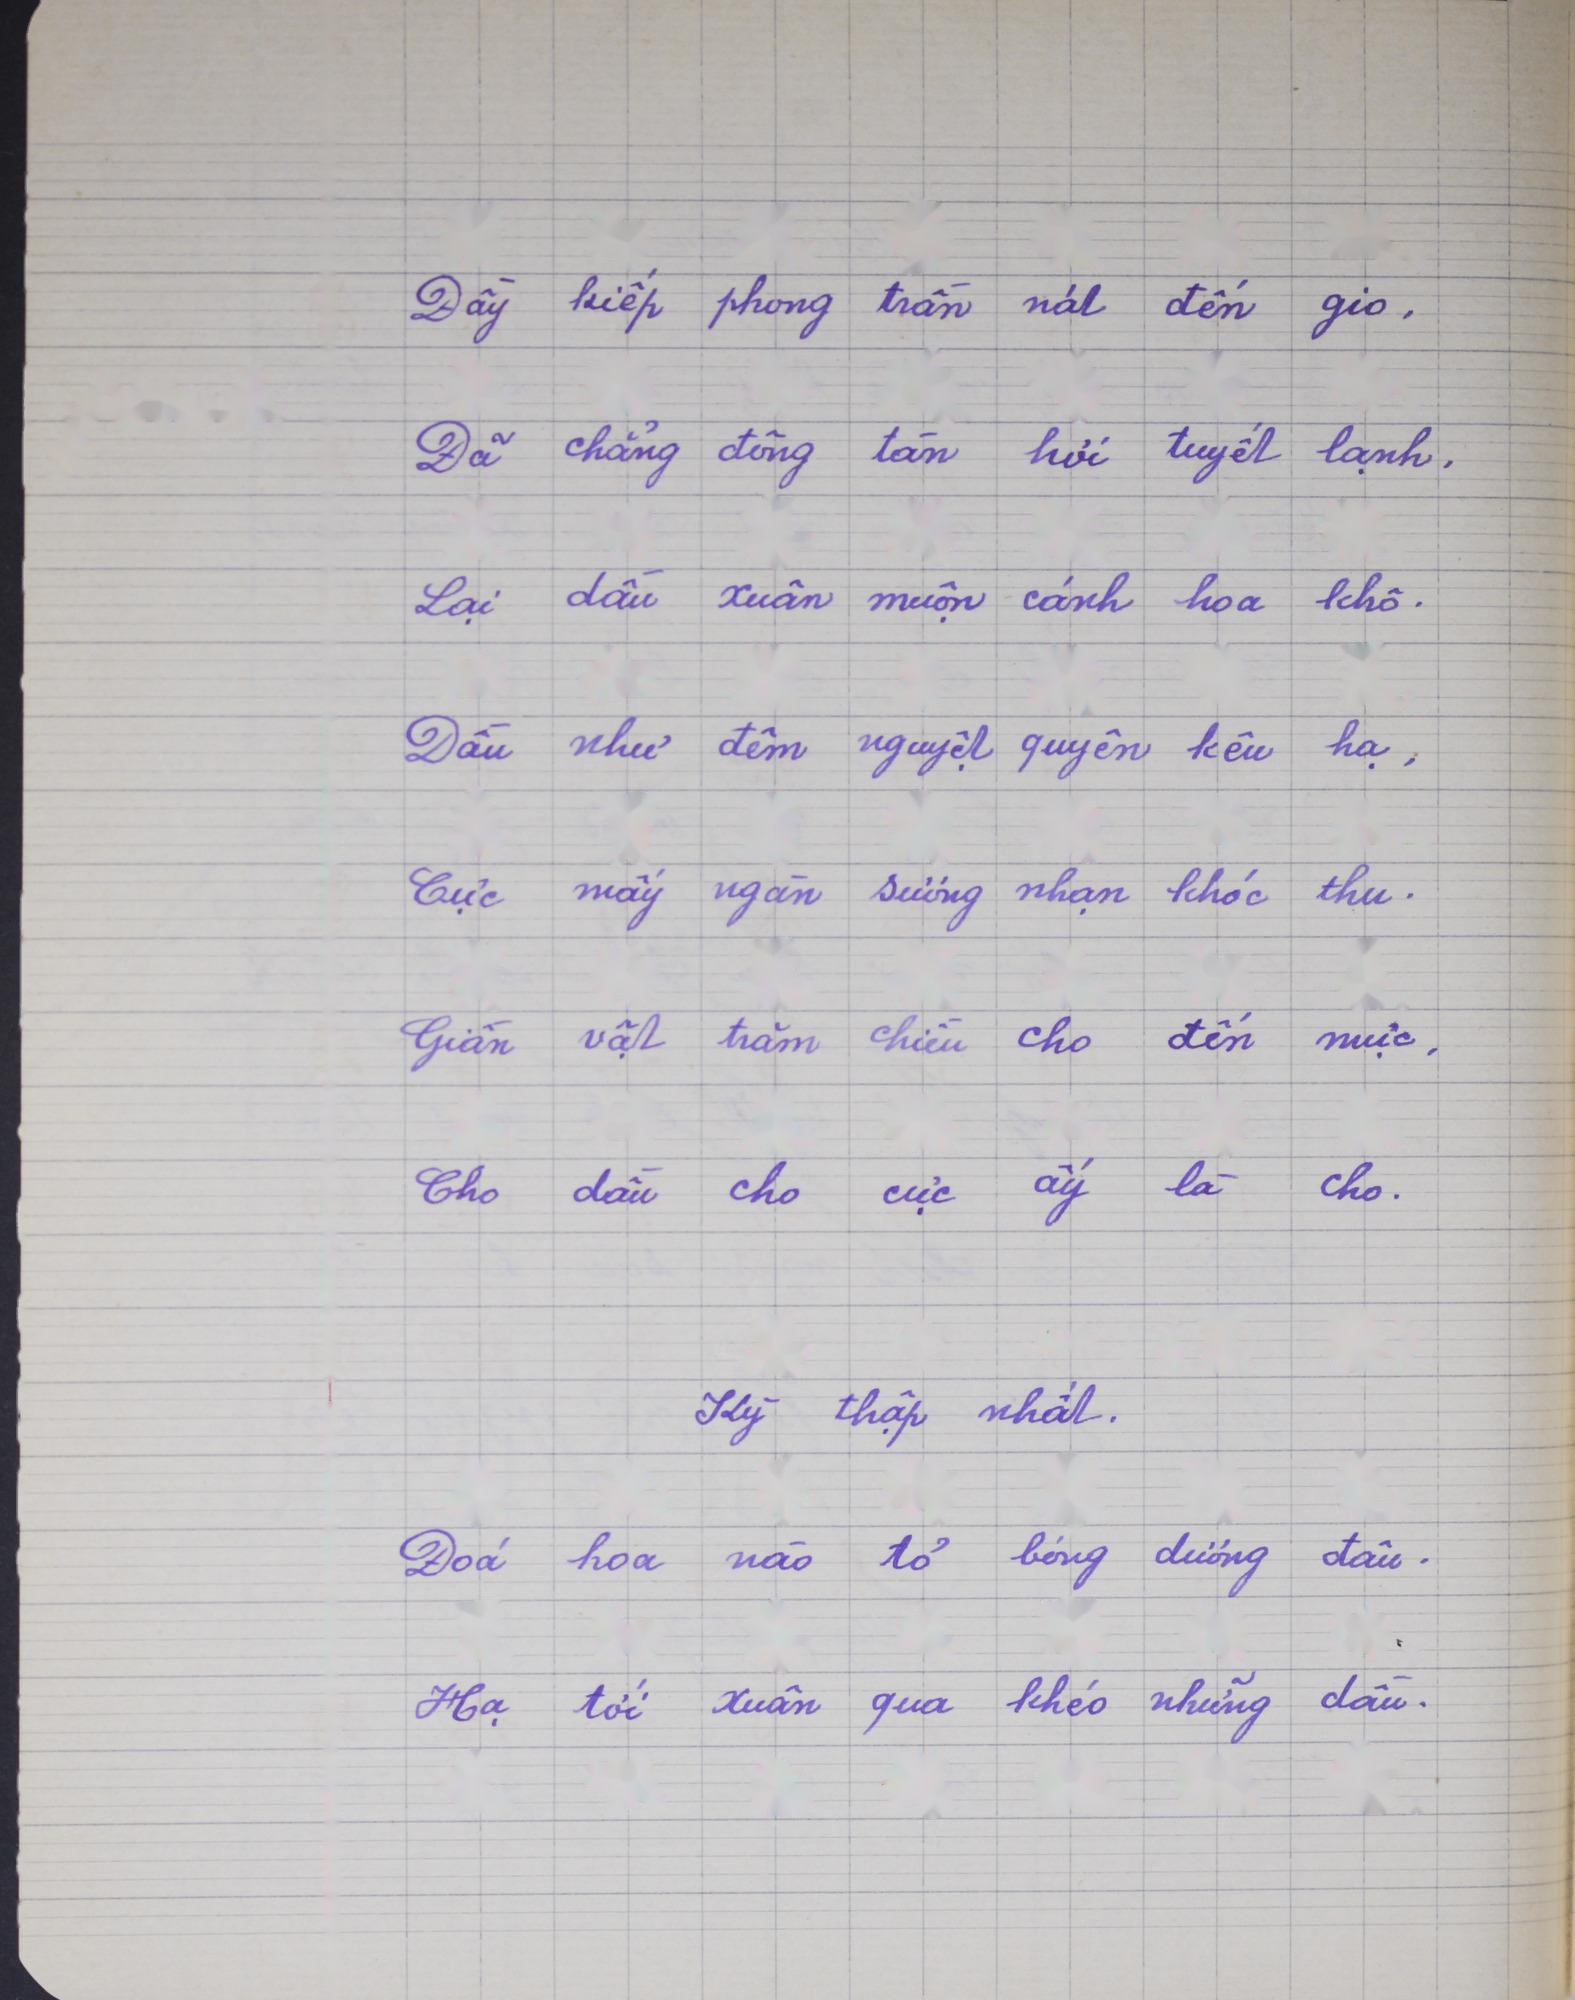 Dầy kiếp phong trần nát đến gio,
Đã chẳng đông tàn hơi tuyết lạnh,
Lại dầu xuân muộn cánh hoa khô.
Dầu như đêm nguyệt quyên kêu hạ,
Cực mấy ngàn sương nhạn khóc thu.
Giần vật trăm chiều cho đến mực,
Cho dầu cho cực ấy là cho.
Kỳ thập nhất.
Đoá hoa nào tỏ bóng dương đâu.
Hạ tới xuân qua khéo những dầu.